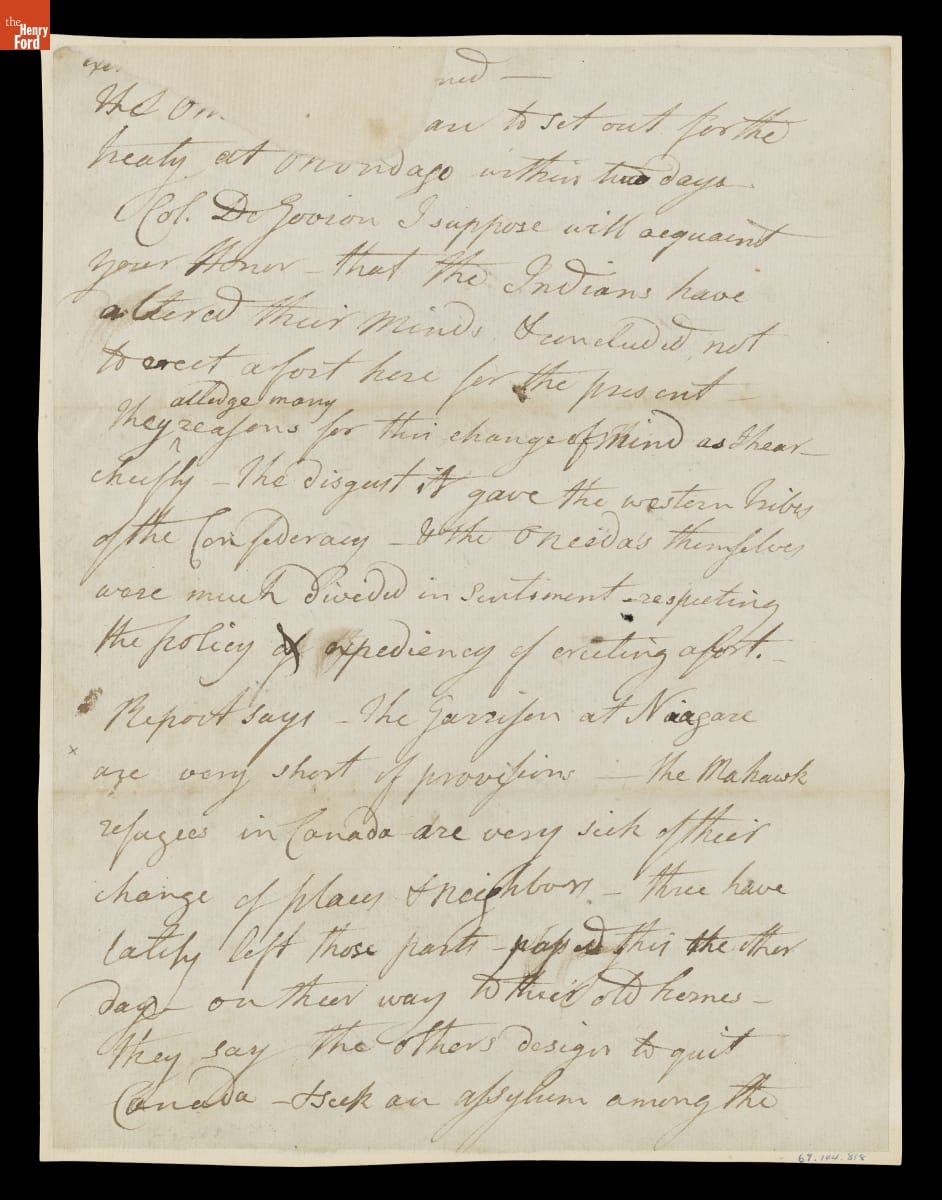 the
Henry
Ford
ned —
the On are to set out for the
treaty at Onondago within two days
Col. De Govion I suppose will acquaint
your Honor – that the Indians have
altered their minds & concluded not
to erect a fort here for the present –
alledge many
They ^ reasons for this change of Mind as I hear –
cheifly – the disgust it gave the western tribes
of the Confederacy – & the Oneida's themselves
were much divided in sentiment – respecting
the policy & expediency of erecting a fort. –
Report says – the Garrison at Niagare
x
are very short of provisions — the Mahawk
refugees in Canada are very sick of their
change of places & neighbors – three have
lately left those parts – passed this the other
day – on their way to their old homes –
they say the others design to quit
Canada – & seek an assylum among the
67.144.818